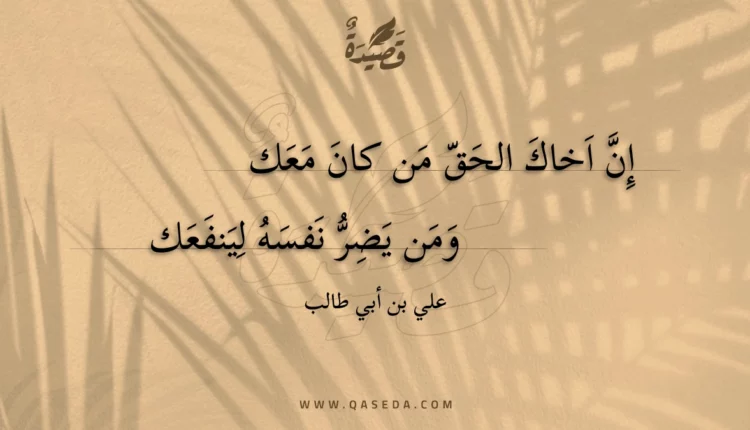 قَصِيدَةٌ
إِنَّ اَخاكَ الحَقّ مَن كانَ مَعَك
وَمَن يَضِرُّ نَفسَهُ لِيَنفَعَك
علي بن أبي طالب
WWW.QASEDA.COM